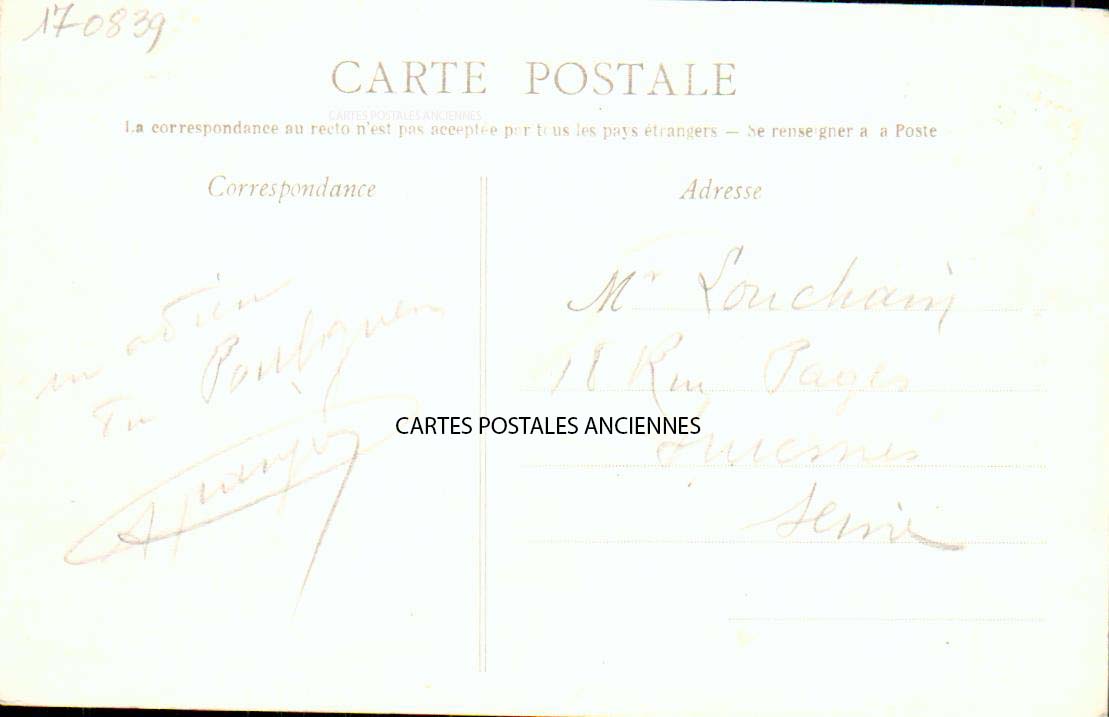 170839
CARTE POSTALE
CARTES POSTALES ANCIENNES
La correspondance au recto n'est pas acceptée par tous les pays étrangers — Se renseigner à la Poste
Correspondance
Adresse
un adieu
Du Pouliguen
Mr Louchain
18 Rue Pages
CARTES POSTALES ANCIENNES
Suresnes
Seine